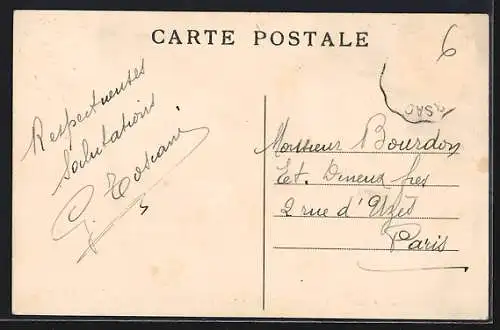 CARTE POSTALE
6
Respectueuses
Salutations
G. Toscani
Monsieur Bourdon
Et. Dineux fres
2 rue d'Uzès
Paris